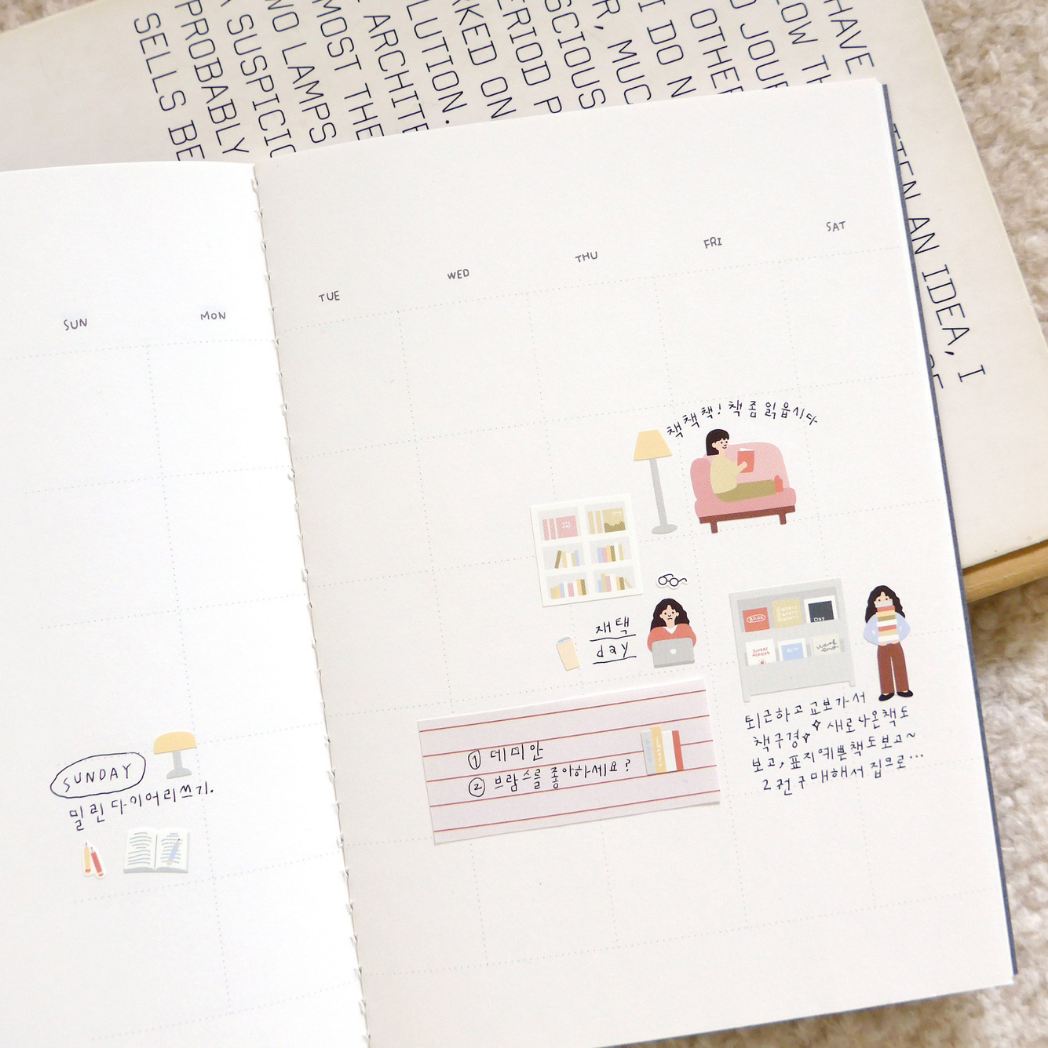 HAVE
SELLS BE
PROBABLY
A SUSPICIO
WO LAMPS
MOST THE
ARCHITE
LUTION.
RKED ON
ERIOD P
SCIOUS
R, MUC
I DO N
OTHER
D JOUR
LOW TH
TTEN AN IDEA, I
SUN
MON
TUE
WED
THU
FRI
SAT
책책책! 책 좀 읽읍시다
재택
day
BOOK
DAY
퇴근하고 교보가서
책구경 새로나온책도
보고, 표지예쁜책도보고~
2권구매해서 집으로...
① 데미안
② 브람스를 좋아하세요?
SUNDAY
밀린다이어리쓰기.